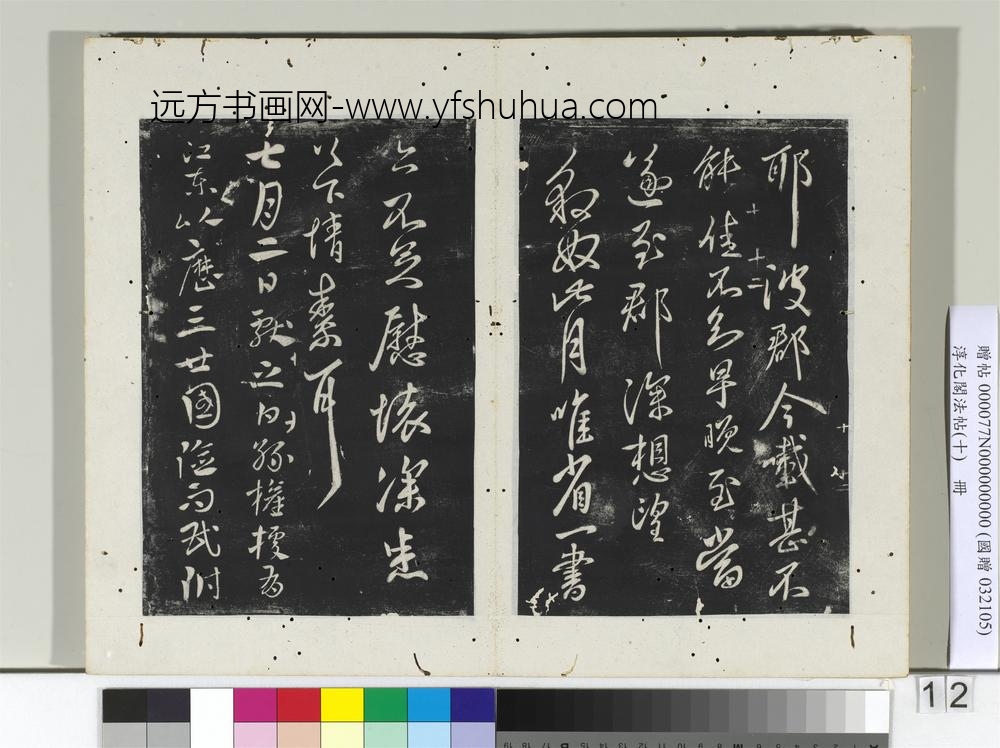 远方书画网-www.yfshuhua.com
耶 彼郡今载甚不
能佳不知早晚至當
遂至郡 深想望
叔奴此月唯省一書
亦不足慰懷深悉
以下情素耳
七月二日獻之白孫權據有
江東以歷三世國險而民附
贈帖 000077N000000000 (國贈 032105)
淳化閣法帖(十) 冊
12